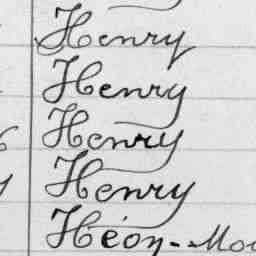 Henry
Henry
Henry
Henry
Héon-